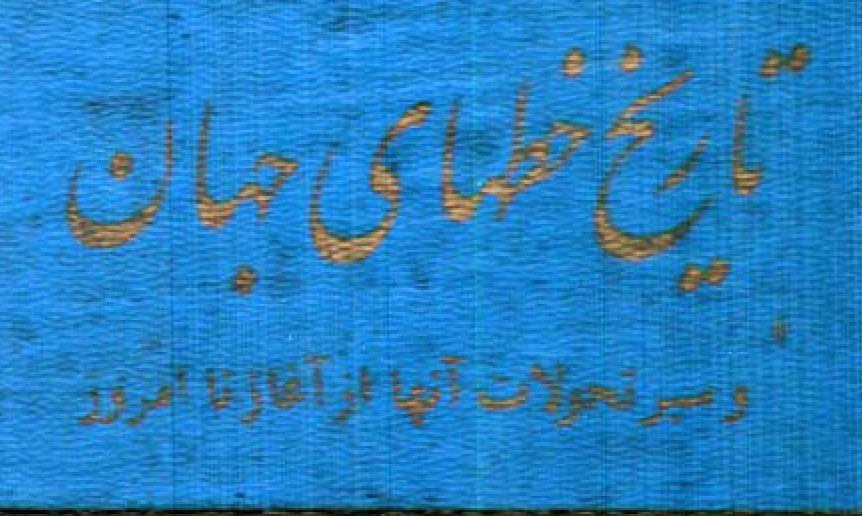 تاریخ خطهای جهان
و سیر تحولات آنها از آغاز تا امروز